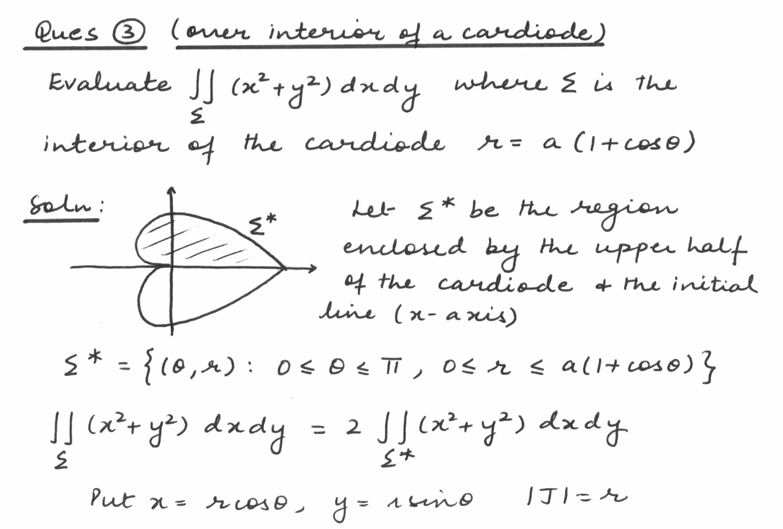 Ques ③ (over interior of a cardiode)
Evaluate ∬_Σ (x²+y²) dxdy where Σ is the
interior of the cardiode r = a (1+cosθ)
Soln:
Σ*
Let Σ* be the region
enclosed by the upper half
of the cardiode & the initial
line (x-axis)
Σ* = {(θ,r) : 0 ≤ θ ≤ π , 0 ≤ r ≤ a(1+cosθ)}
∬_Σ (x²+y²) dxdy = 2 ∬_Σ* (x²+y²) dxdy
Put x = rcosθ, y = rsinθ |J| = r